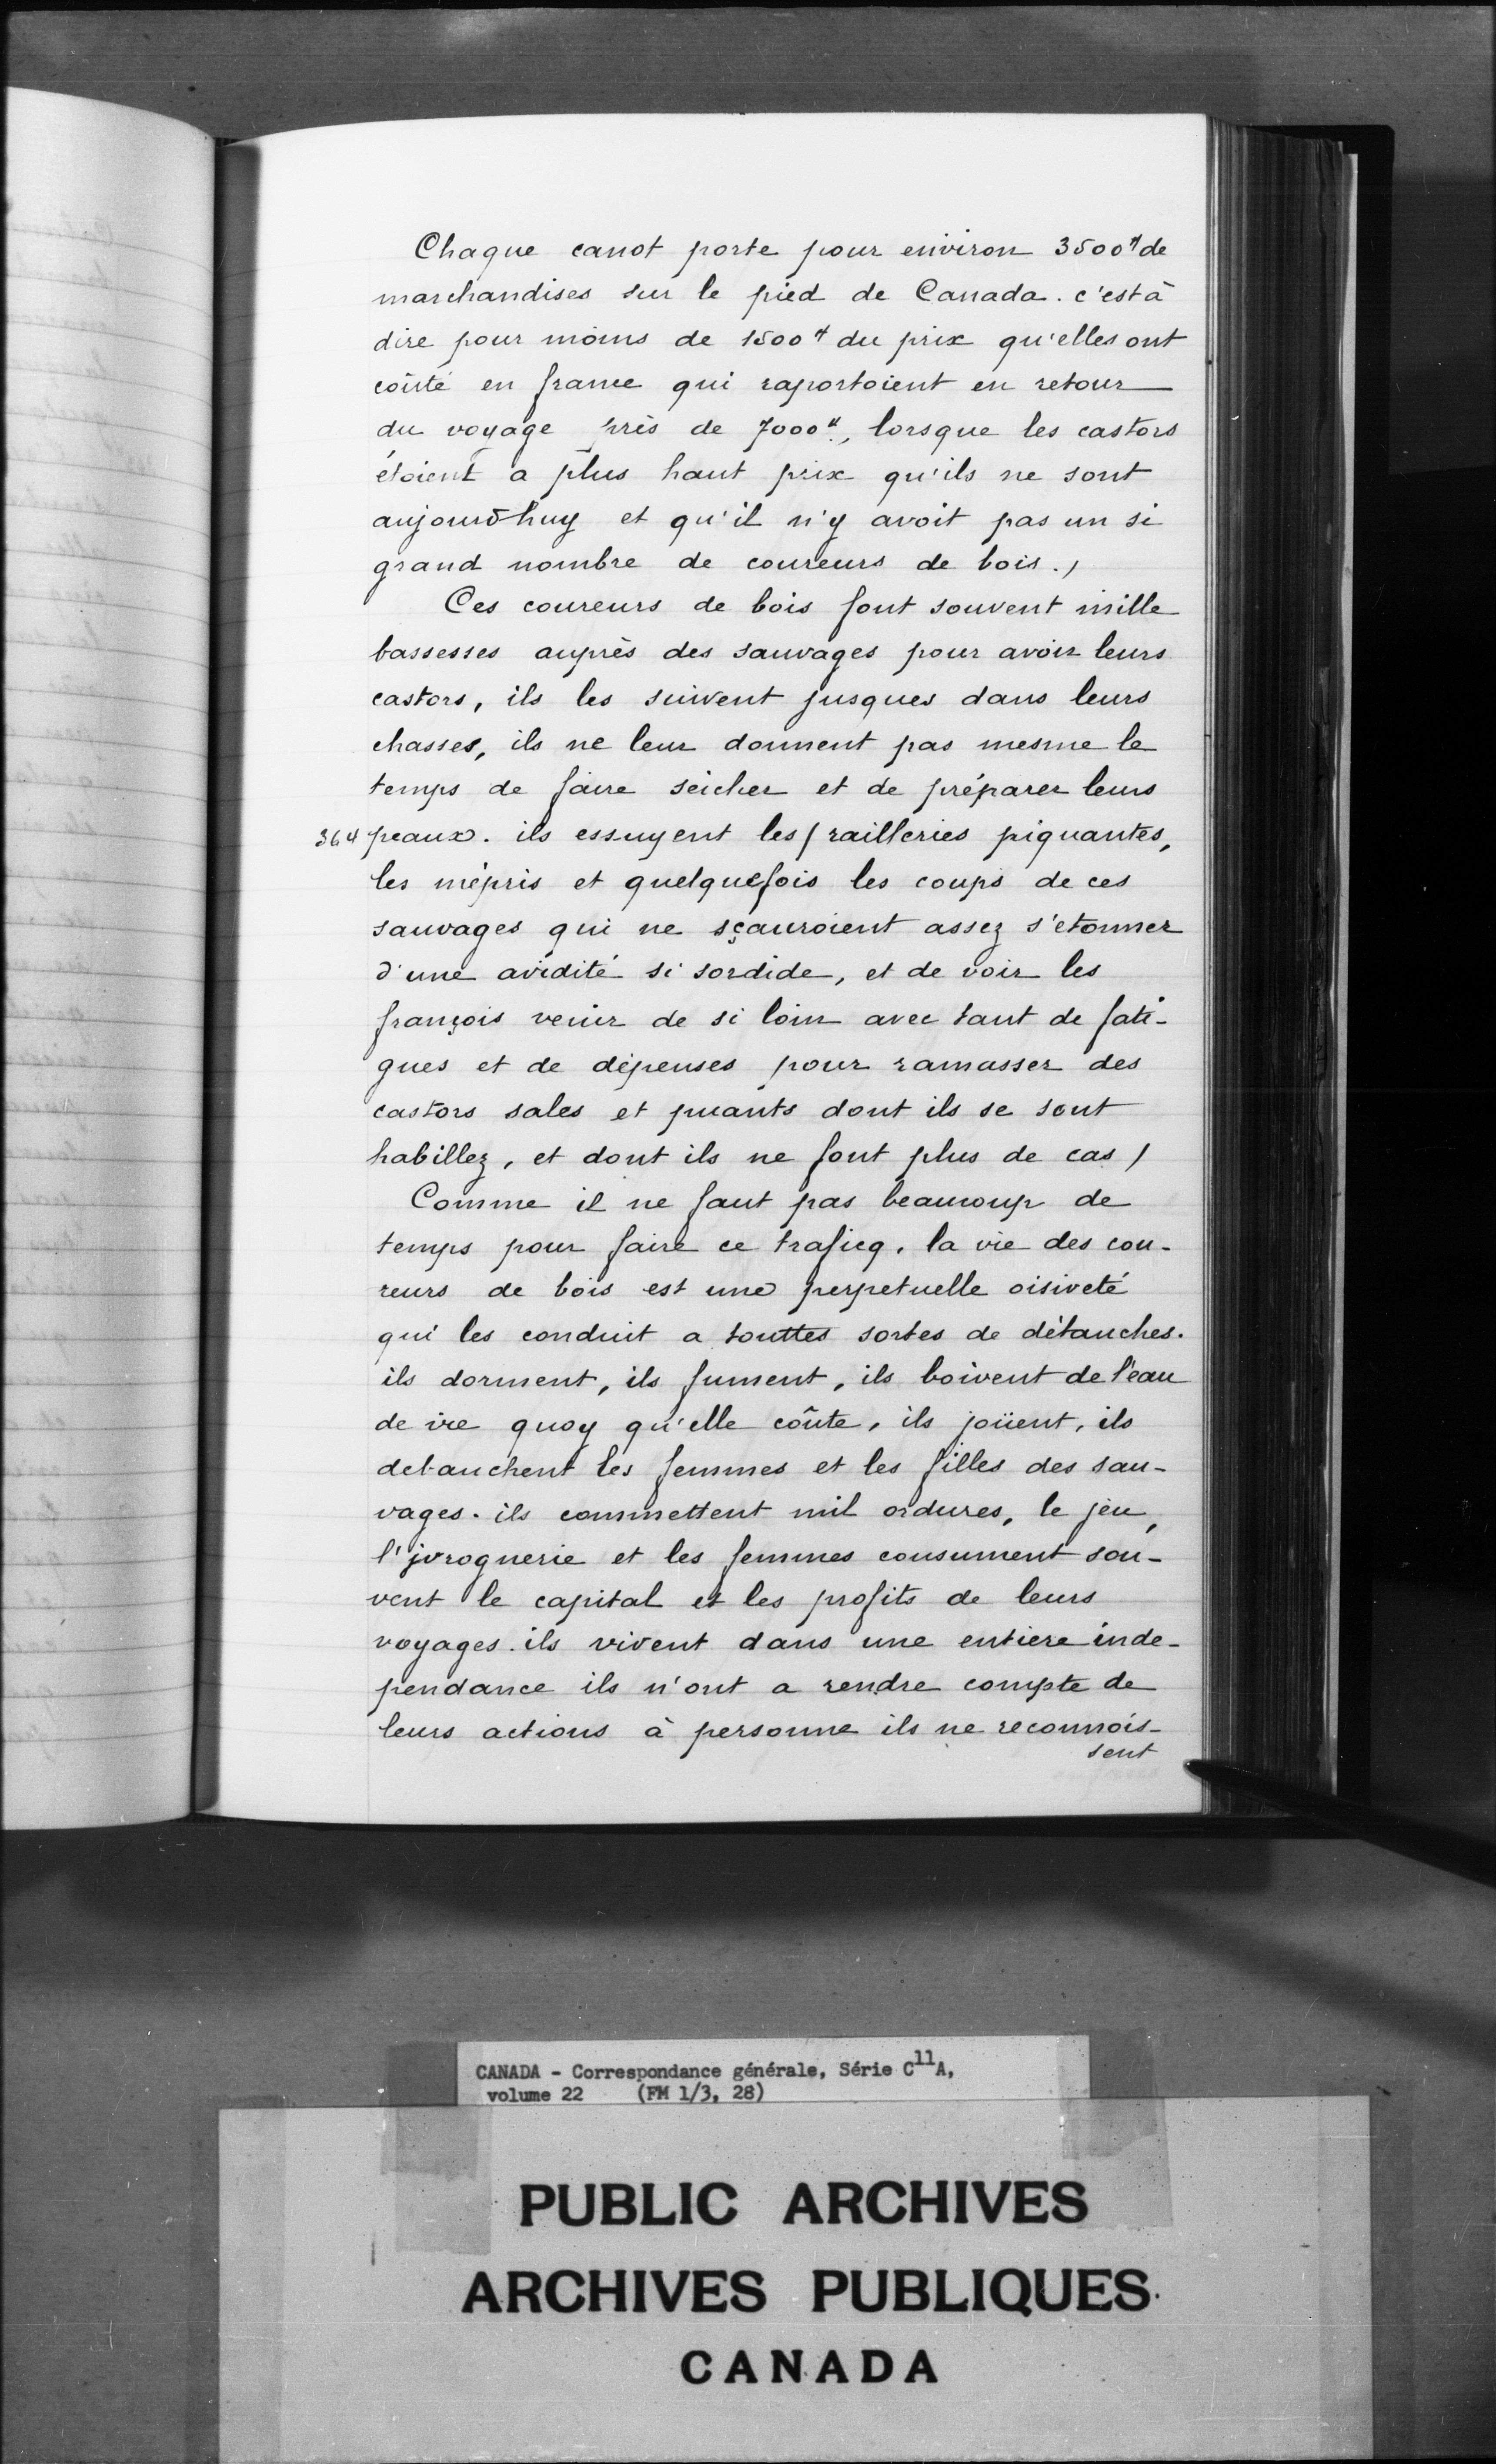 Chaque canot porte pour environ 3500# de
marchandises sur le pied de Canada. c'est à
dire pour moins de 1500# du prix qu'elles ont
coûté en france qui raportoient en retour
du voyage près de 7000#, lorsque les castors
étoient a plus haut prix qu'ils ne sont
aujourd'huy et qu'il n'y avoit pas un si
grand nombre de coureurs de bois./
Ces coureurs de bois font souvent mille
bassesses auprès des sauvages pour avoir leurs
castors, ils les suivent jusques dans leurs
chasses, ils ne leur donnent pas mesme le
temps de faire seicher et de préparer leurs
364 peaux. ils essuyent les / railleries piquantes,
les mépris et quelquefois les coups de ces
sauvages qui ne sçauroient assez s'etonner
d'une avidité si sordide, et de voir les
françois venir de si loin avec tant de fati-
gues et de dépenses pour ramasser des
castors sales et puants dont ils se sont
habillez, et dont ils ne font plus de cas /
Comme il ne faut pas beaucoup de
temps pour faire ce traficq, la vie des cou-
reurs de bois est une perpetuelle oisiveté
qui les conduit a touttes sortes de débauches.
ils dorment, ils fument, ils boivent de l'eau
de vie quoy qu'elle coûte, ils joüent, ils
debauchent les femmes et les filles des sau-
vages. ils commettent mil ordures, le jeu,
l'jvrognerie et les femmes consument sou-
vent le capital et les profits de leurs
voyages. ils vivent dans une entiere inde-
pendance ils n'ont a rendre compte de
leurs actions à personne ils ne reconnois-
sent
CANADA - Correspondance générale, Série C11A,
volume 22 (FM 1/3, 28)
PUBLIC ARCHIVES
ARCHIVES PUBLIQUES
CANADA